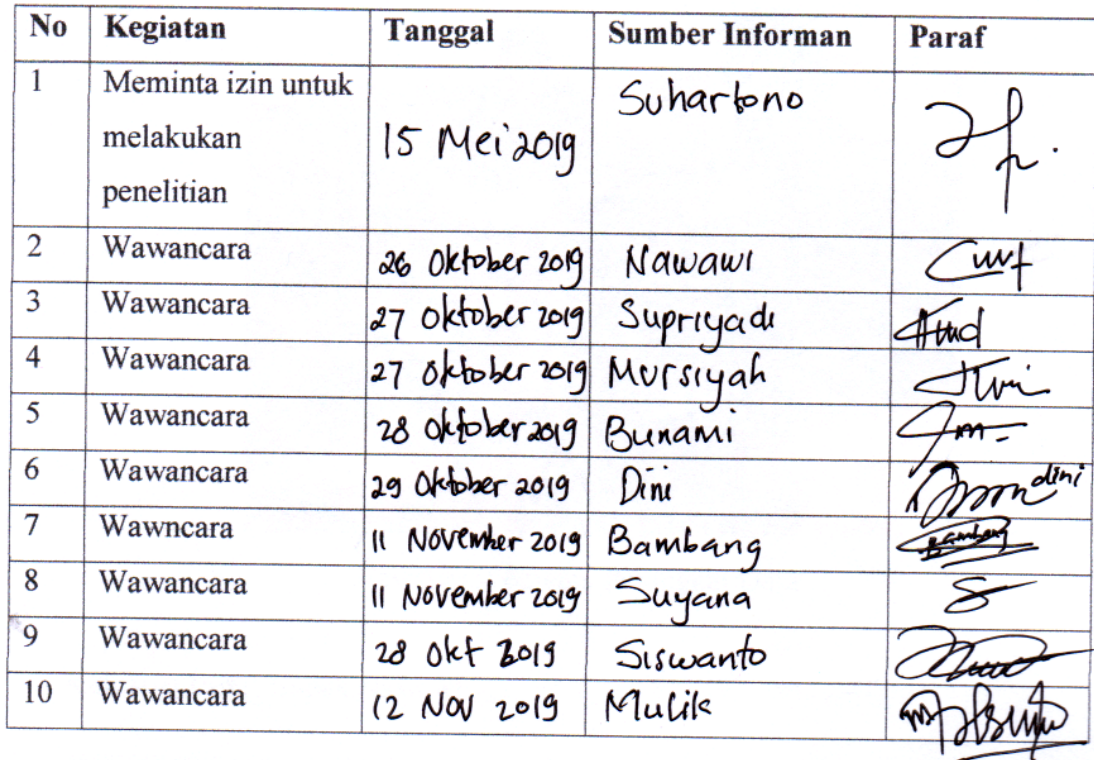 No Kegiatan Tanggal Sumber Informan Paraf
1 Meminta izin untuk melakukan penelitian 15 Mei 2019 Suhartono
2 Wawancara 26 Oktober 2019 Nawawi
3 Wawancara 27 Oktober 2019 Supriyadi
4 Wawancara 27 Oktober 2019 Mursiyah
5 Wawancara 28 Oktober 2019 Bunami
6 Wawancara 29 Oktober 2019 Dini dini
7 Wawncara 11 November 2019 Bambang Bambang
8 Wawancara 11 November 2019 Suyana
9 Wawancara 28 Okt 2019 Siswanto
10 Wawancara 12 Nov 2019 Mulik